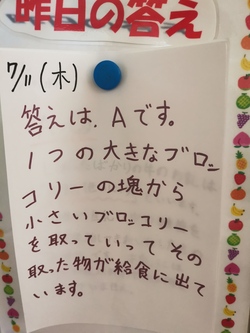 昨日の答え
7/11(木)
答えは、Aです。
1つの大きなブロッ
コリーの塊から
小さいブロッコリー
を取っていって その
取った物が給食に出て
います。